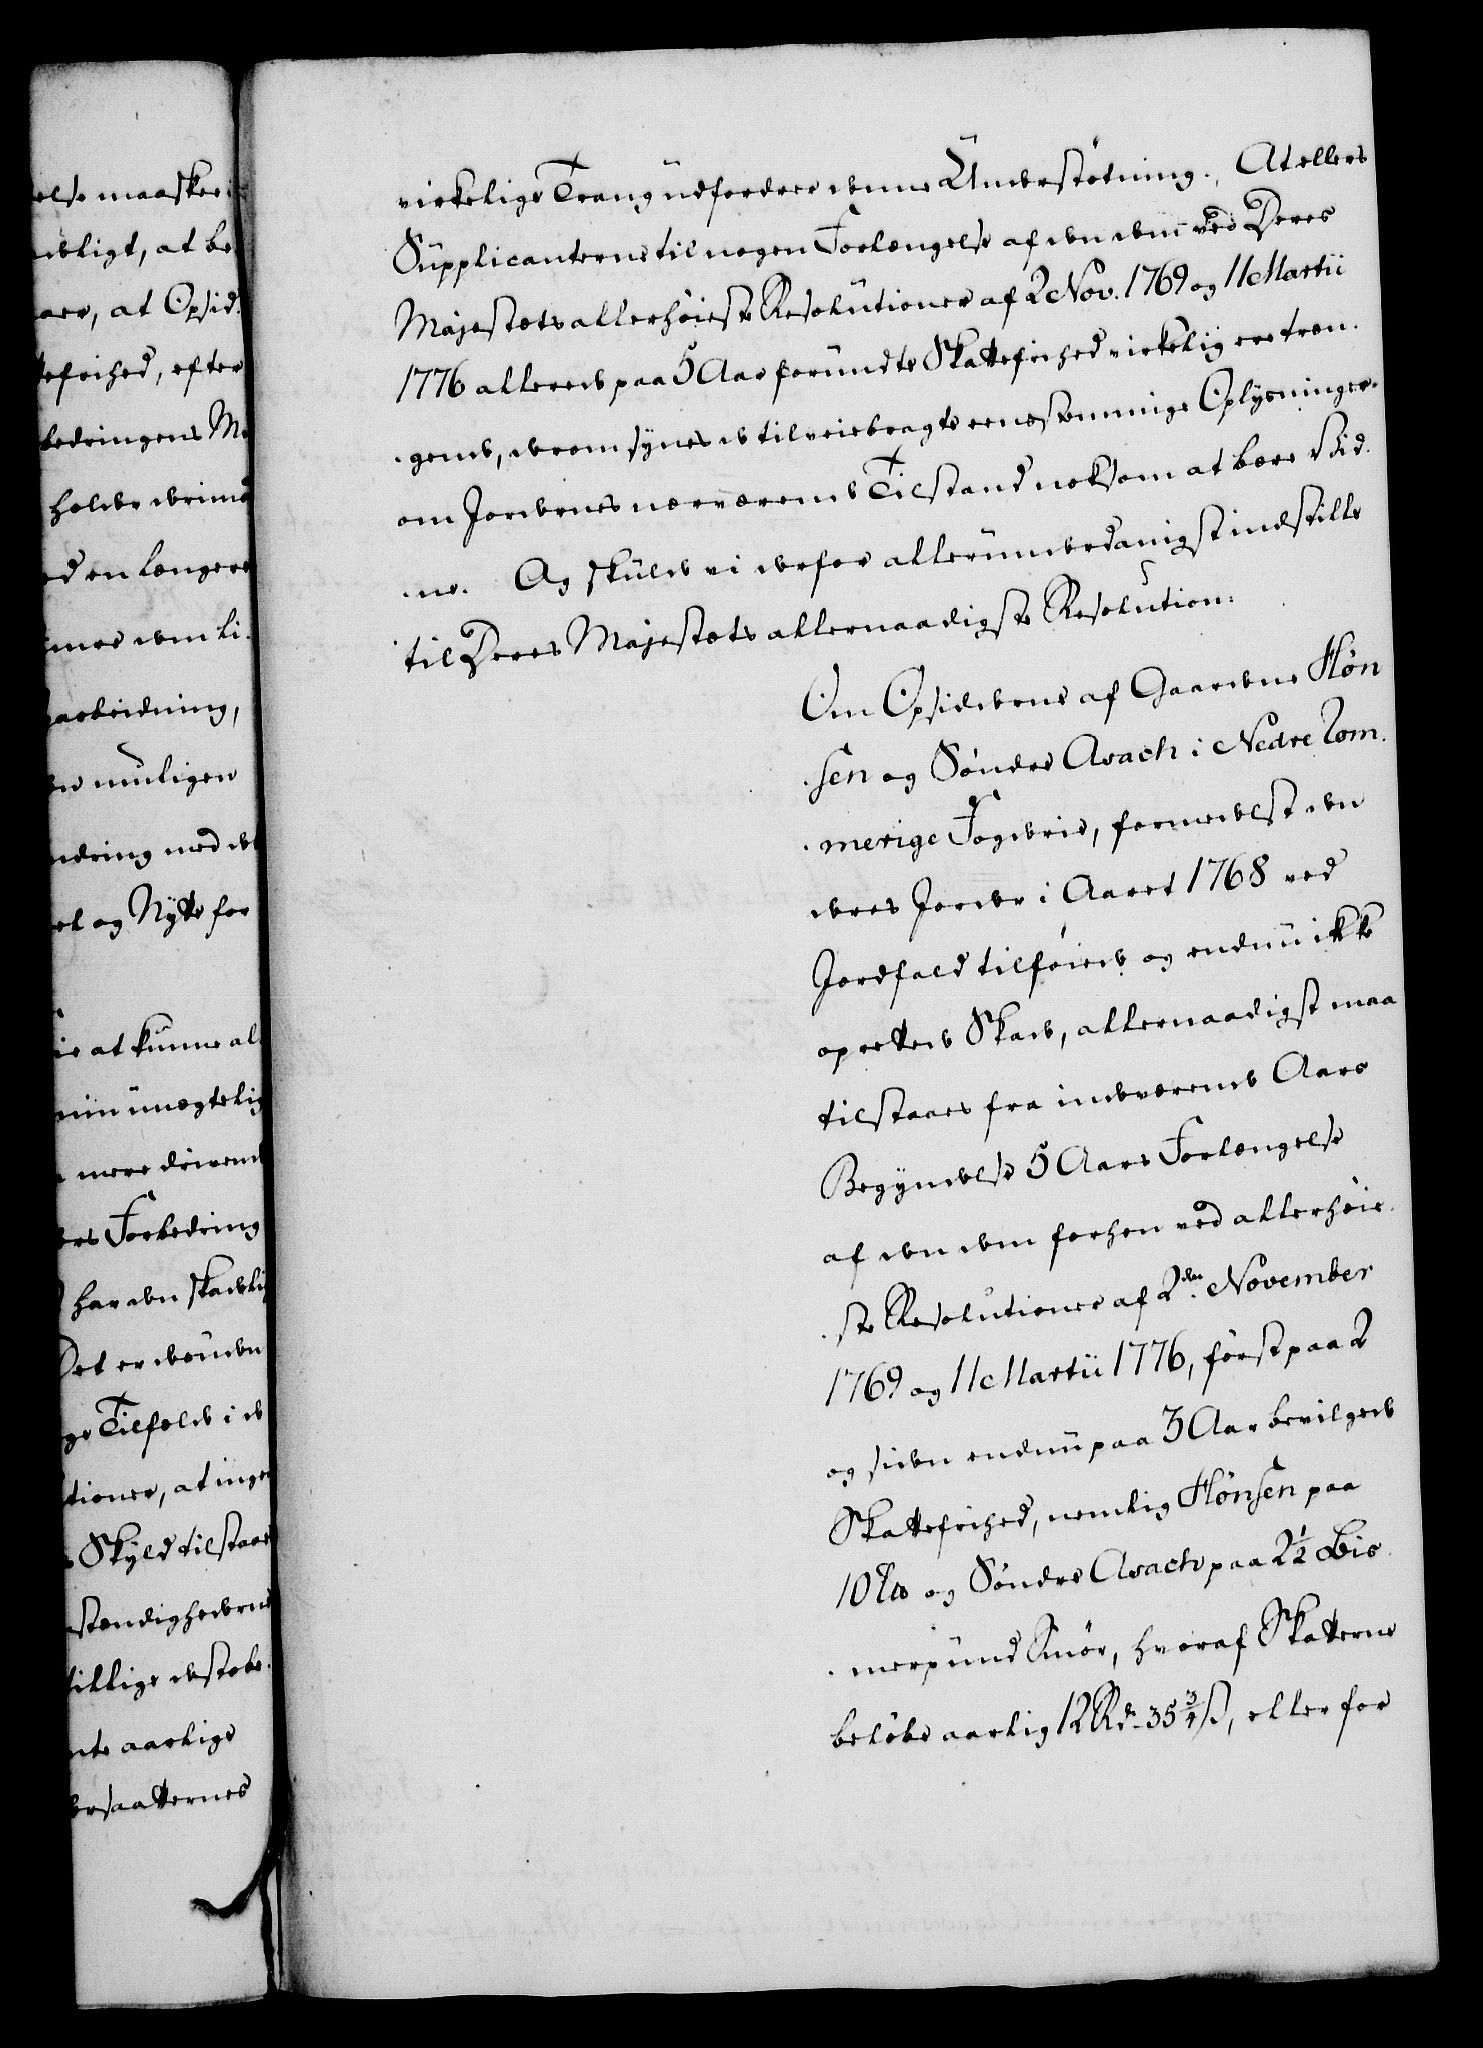 else maaskee i
deligt, at be
aer, at Opsid.
tefrihed, efter
bedringens Me
holde derimod
ed en længere
mer dem li.
arbeidning,
muligen
ndring med de
el og Nytte for
ie at kunne al
unægtelig
mere drivende
ers Forbedring
har den skadeli
Det er desuden
ge Tilfælde i de
tioner, at ingen
Skyld tilstaaes
stændighederne
tillige destobe.
nte aarlige
ersaatternes
virkelige Trang udfordrer denne Understøtning., At ellers
Supplicanterne til nogen Forlængelse af den dem ved Deres
Majestæts allerhøieste Resolutioner af 2 Nov. 1769 og 11 Martii
1776 allerede paa 5 Aar forundte Skattefrihed virkelig ere træn.
.gende, derom synes de tilveiebragte eenstemmige Oplysninger
om Jordenes nærværende Tilstand noksom at bære Vid.
.ne. Og skulde vi derfor allerunderdanigst indstille
til Deres Majestæts allernaadigste Resolution:
Om Opsidderne af Gaardene Høn
.sen og Søndre Asach i Nedre Rom.
.merige Fogderie, formedelst den
deres Jorder i Aaret 1768 ved
Jordfald tilføiede og endnu ikke
oprettede Skade, allernaadigst maa
tilstaaes fra indeværende Aars
Begyndelse 5 Aars Forlængelse
af den dem forhen ved allerhøie.
.ste Resolutioner af 2den November
1769 og 11 Martii 1776, først paa 2
og siden endnu paa 3 Aar bevilgede
Skattefrihed, nemlig Hønsen paa
10 og Søndre Asach paa 2½ Bis
.merpund Smør, hvoraf Skatterne
beløbe aarlig 12 Rd. 35¾ ß, eller for